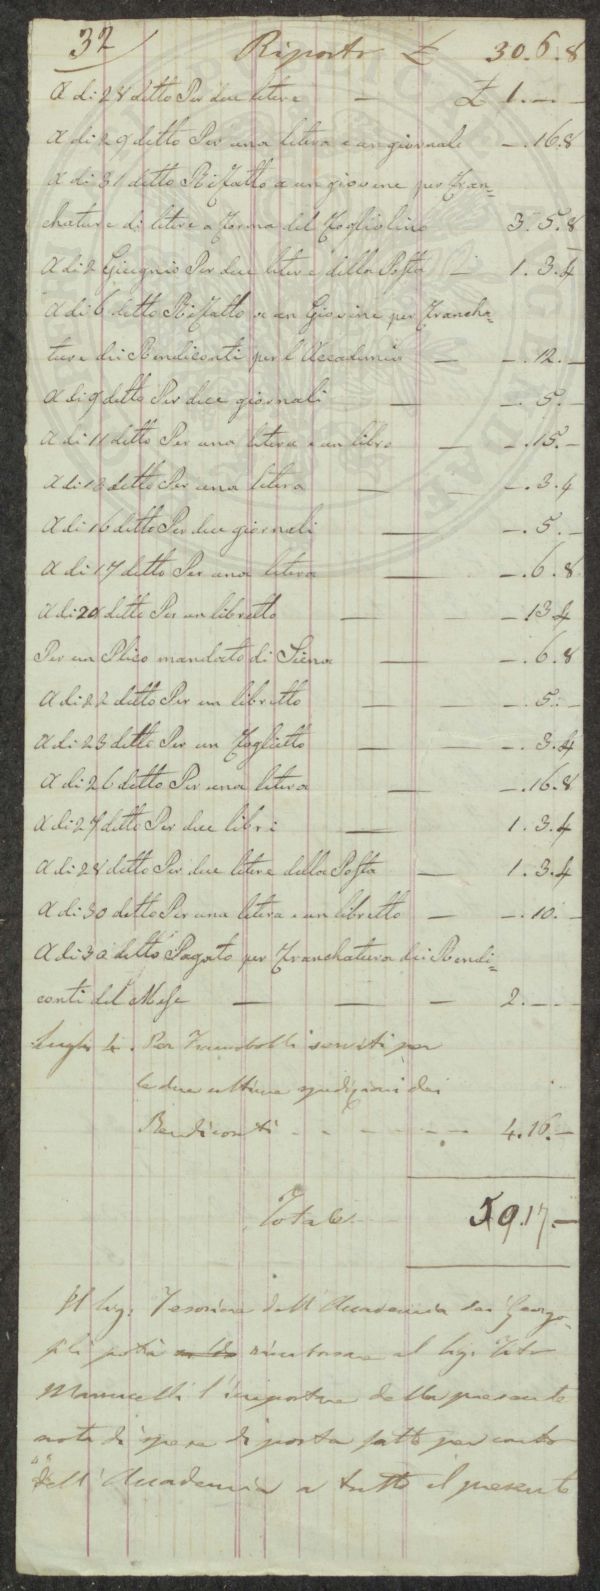 32 Riporto £ 30.6.8
A di 28 ditto Per due litere — £ 1.—.—
A di 29 ditto Per una litera e un giornale —.16.8
A di 31 ditto Rifatto a un giovine per Fran=
chature di litere a forma del Fogliolino 3.5.8
A di 2 Giugnio Per due litere della Posta — 1.3.4
A di 6 ditto Rifatto a un Giovine per Francha=
ture dei Rendiconti per l'Accademia — —.12.—
A di 9 ditto Per due giornali — —.5.—
A di 11 ditto Per una litera e un libro — —.15.—
A di 13 ditto Per una litera — —.3.4
A di 16 ditto Per due giornali — —.5.—
A di 17 ditto Per una litera — —.6.8
A di 20 ditto Per un libretto — —.13.4
Per un Plico mandato di Siena — —.6.8
A di 22 ditto Per un libretto — —.5.—
A di 23 ditto Per un Foglietto — —.3.4
A di 26 ditto Per una litera — —.16.8
A di 27 ditto Per due libri — 1.3.4
A di 28 ditto Per due litere della Posta — 1.3.4
A di 30 ditto Per una litera e un libretto — —.10.—
A di 30 ditto Pagato per Franchatura dei Rendi=
conti del Mese — — — 2.—.—
Luglio 4. Per Francobolli serviti per
le due ultime spedizioni dei
Rendiconti — — — 4.16.—
Totale 59.17.—
Il Sig: Tesoriere dell'Accademia dei Georgo=
fili potrà rimborsare al Sig: Tito
l'importare della presente
nota di spese di posta fatte per conto
dell'Accademia a tutto il presente